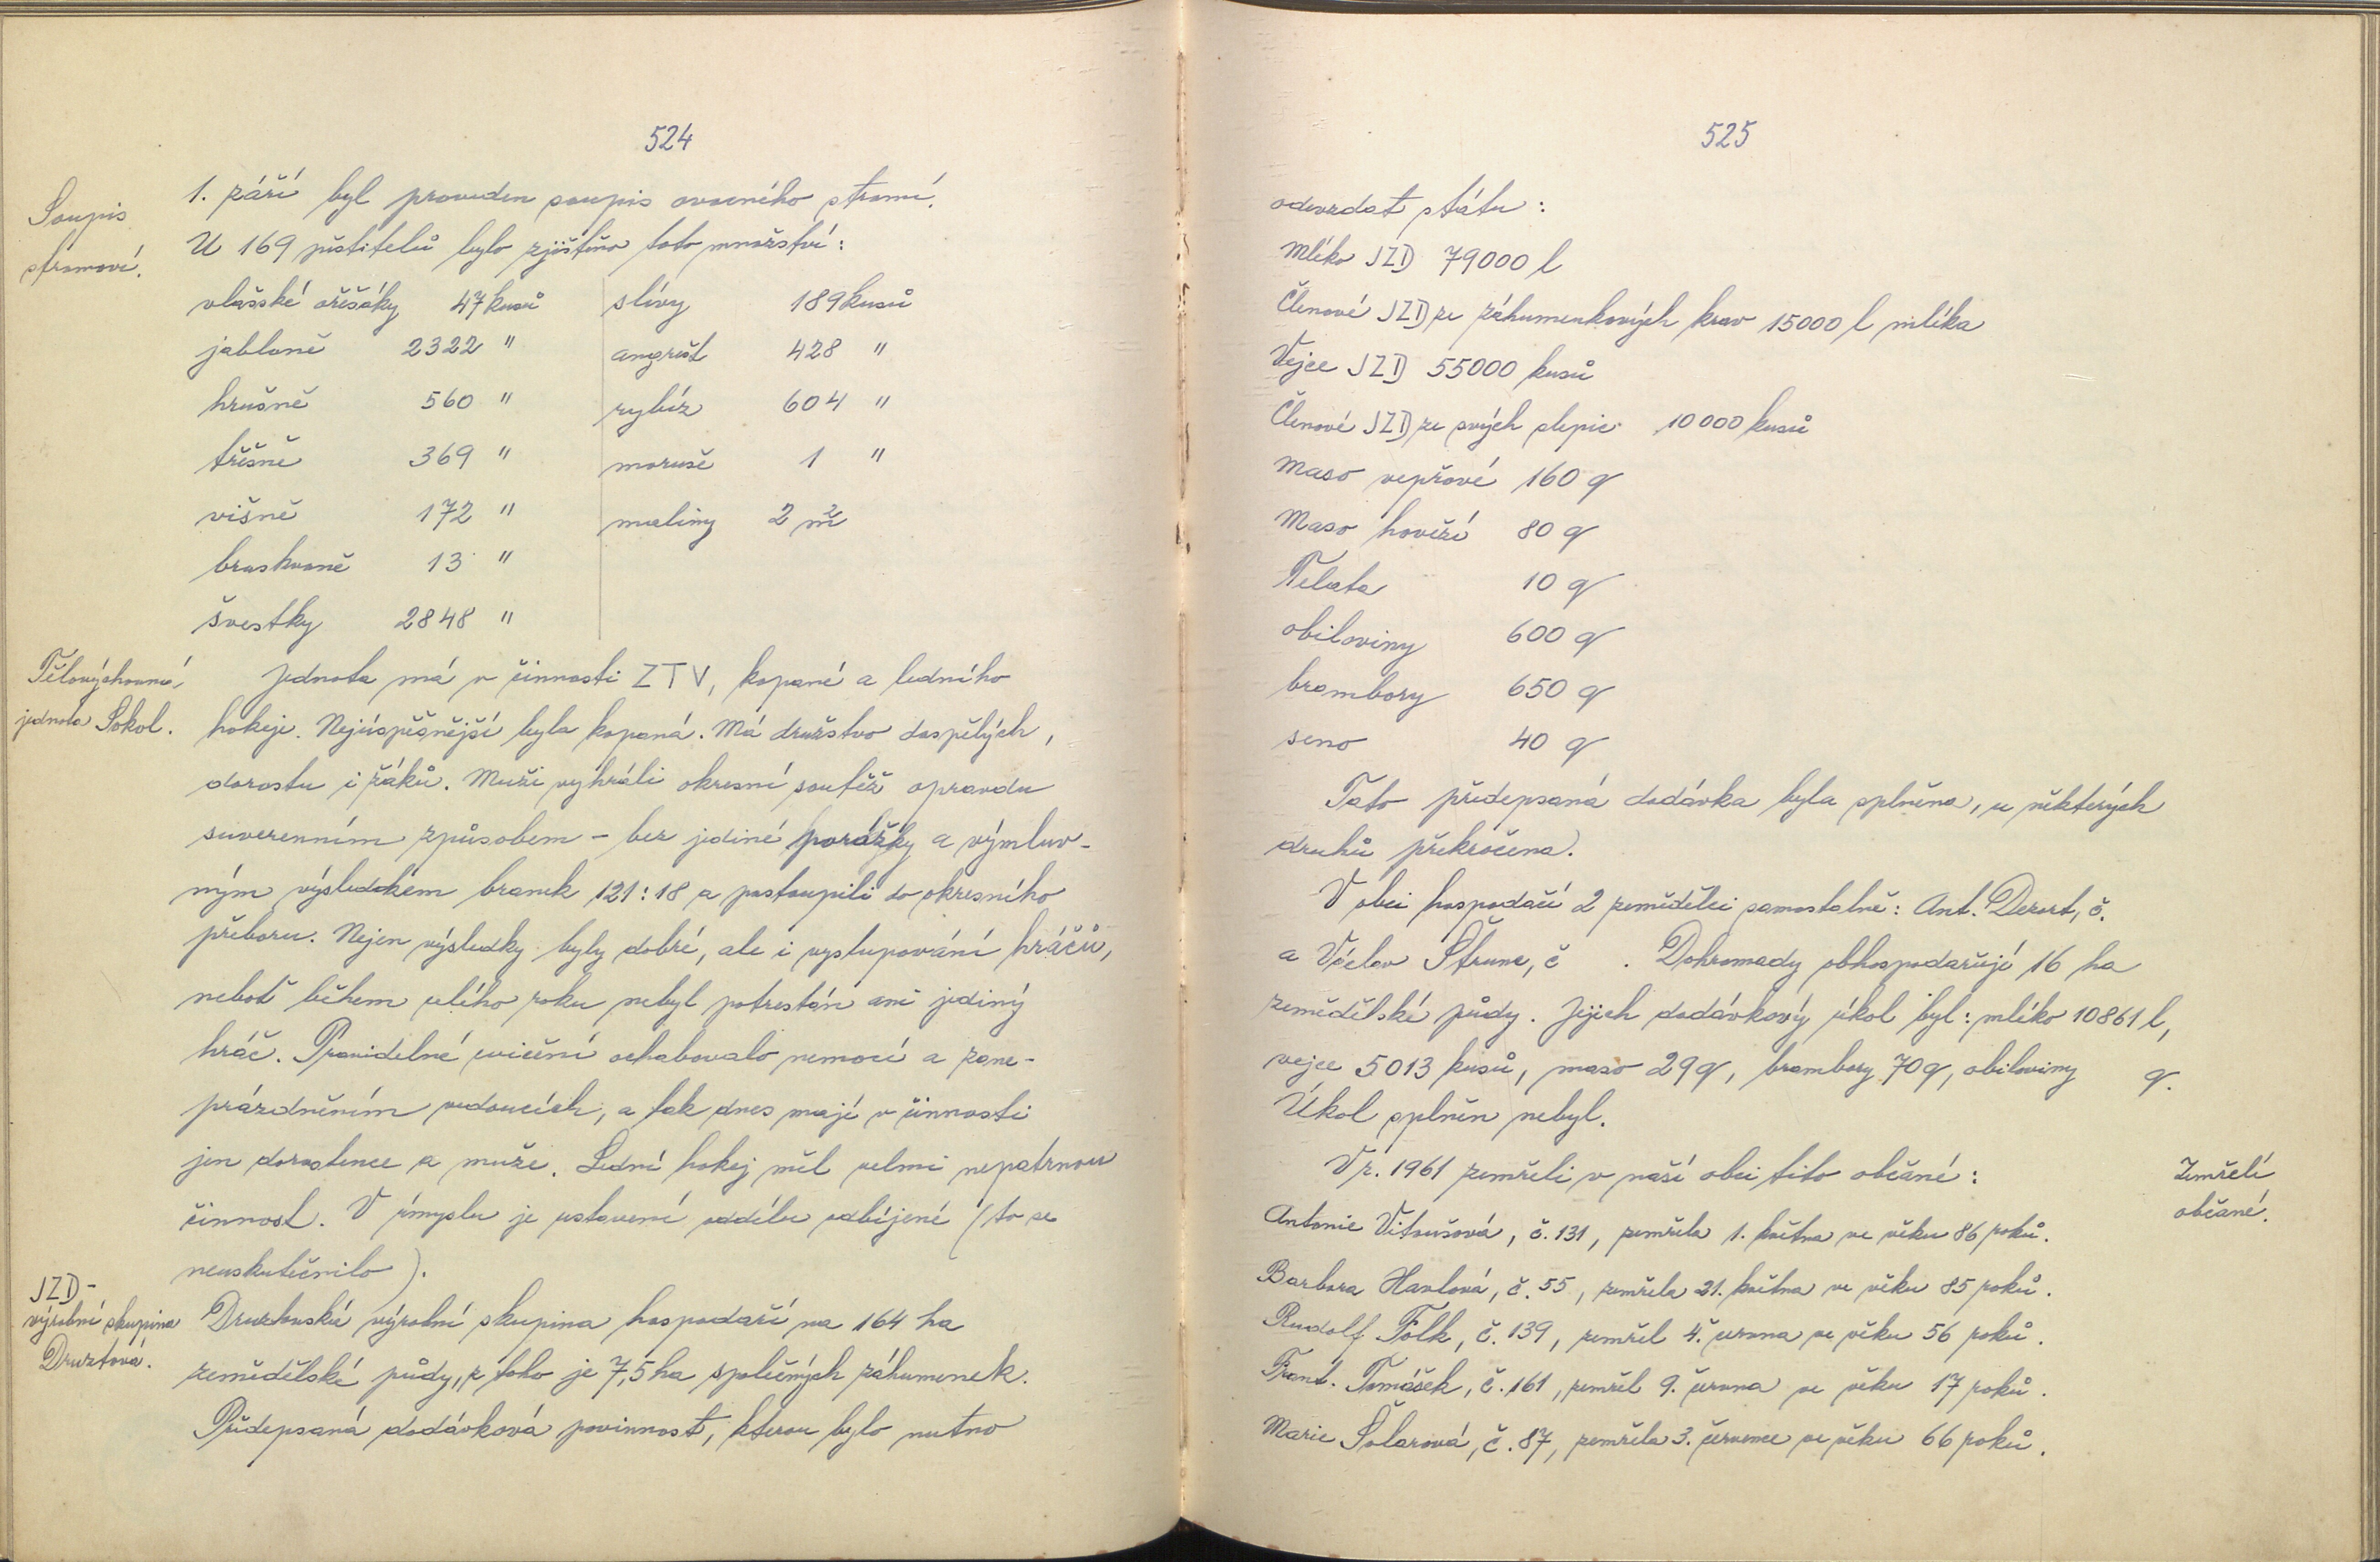 524
Soupis
stromoví.
1. září byl proveden soupis ovocného stromí.
U 169 pěstitelů bylo zjištěno toto množství:
vlašské ořešáky 47 kusů
jabloně 2322 "
hrušně 560 "
třešně 369 "
višně 172 "
broskvoně 13 "
švestky 2848 "
slívy 189 kusů
angrešt 428 "
rybíz 604 "
moruše 1 "
maliny 2 m²
Tělovýchovná
jednota Sokol.
Jednota má v činnosti ZTV, kopané a ledního
hokeje. Nejúspěšnější byla kopaná. Má družstvo dospělých,
dorostu i žáků. Muži vyhráli okresní soutěž opravdu
suverenním způsobem – bez jediné porážky a výmluv-
ným výsledkem branek 121:18 a postoupili do okresního
přeboru. Nejen výsledky byly dobré, ale i vystupování hráčů,
neboť během celého roku nebyl potrestán ani jediný
hráč. Pravidelné cvičení ochabovalo nemocí a zane-
prázdněním vedoucích, a tak dnes mají v činnosti
jen dorostence a muže. Lední hokej měl velmi nepatrnou
činnost. V úmyslu je ustavení oddílu odbíjené (to se
neuskutečnilo).
JZD -
výrobní skupina
Druztová.
Druztovská výrobní skupina hospodaří na 164 ha
zemědělské půdy, z toho je 7,5 ha společných záhumenek.
Předepsaná dodávková povinnost, kterou bylo nutno
525
odevzdat státu:
Mléko JZD 79000 l
Členové JZD ze záhumenkových krav 15000 l mléka
Vejce JZD 55000 kusů
Členové JZD ze svých slepic 10000 kusů
Maso vepřové 160 q
Maso hovězí 80 q
Telata 10 q
obiloviny 600 q
brambory 650 q
seno 40 q
Tato předepsaná dodávka byla splněna, u některých
druhů překročena.
V obci hospodaří 2 zemědělci samostatně: Ant. Dezort, č.
a Václav Štrunc, č . Dohromady obhospodařují 16 ha
zemědělské půdy. Jejich dodávkový úkol byl: mléko 10861 l,
vejce 5013 kusů, maso 29 q, brambory 70 q, obiloviny q.
Úkol splněn nebyl.
Zemřelí
občané.
V r. 1961 zemřeli v naší obci tito občané:
Antonie Vitoušová, č. 131, zemřela 1. května ve věku 86 roků.
Barbora Havlová, č. 55, zemřela 21. května ve věku 85 roků.
Rudolf Folk, č. 139, zemřel 4. června ve věku 56 roků.
Frant. Tomášek, č. 161, zemřel 9. června ve věku 17 roků.
Marie Šolarová, č. 87, zemřela 3. července ve věku 66 roků.